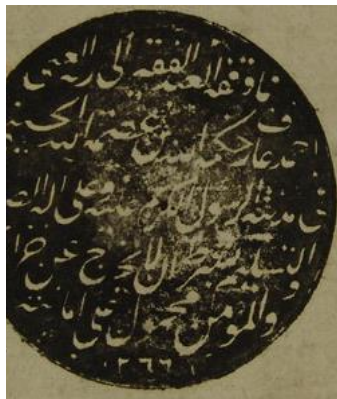 مما وقفه العبد الفقير الى ربه الغني
احمد عارف حكمة الله بن عصمة الله الحسيني
في مدينة الرسول الكريم عليه وعلى اله
والتسليم بشرط ان لا يخرج عن
والمؤمن محمول على امانته
١٢٦٦